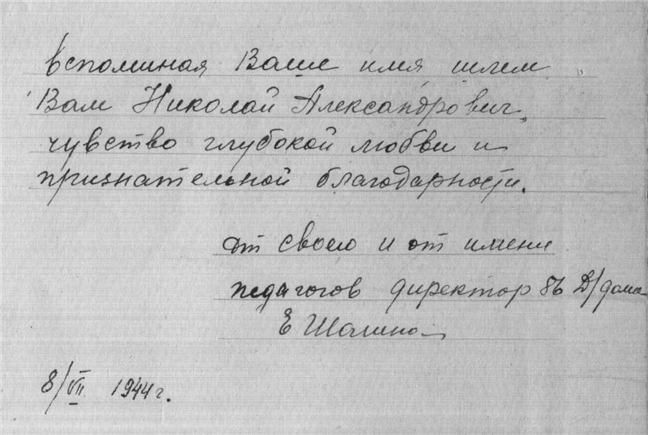 вспоминая Ваше имя шлем
Вам Николай Александрович,
чувство глубокой любви и
признательной благодарности.
от своего и от имени
педагогов директор 86 Д/дома
Е Шалина
8/VII 1944 г.